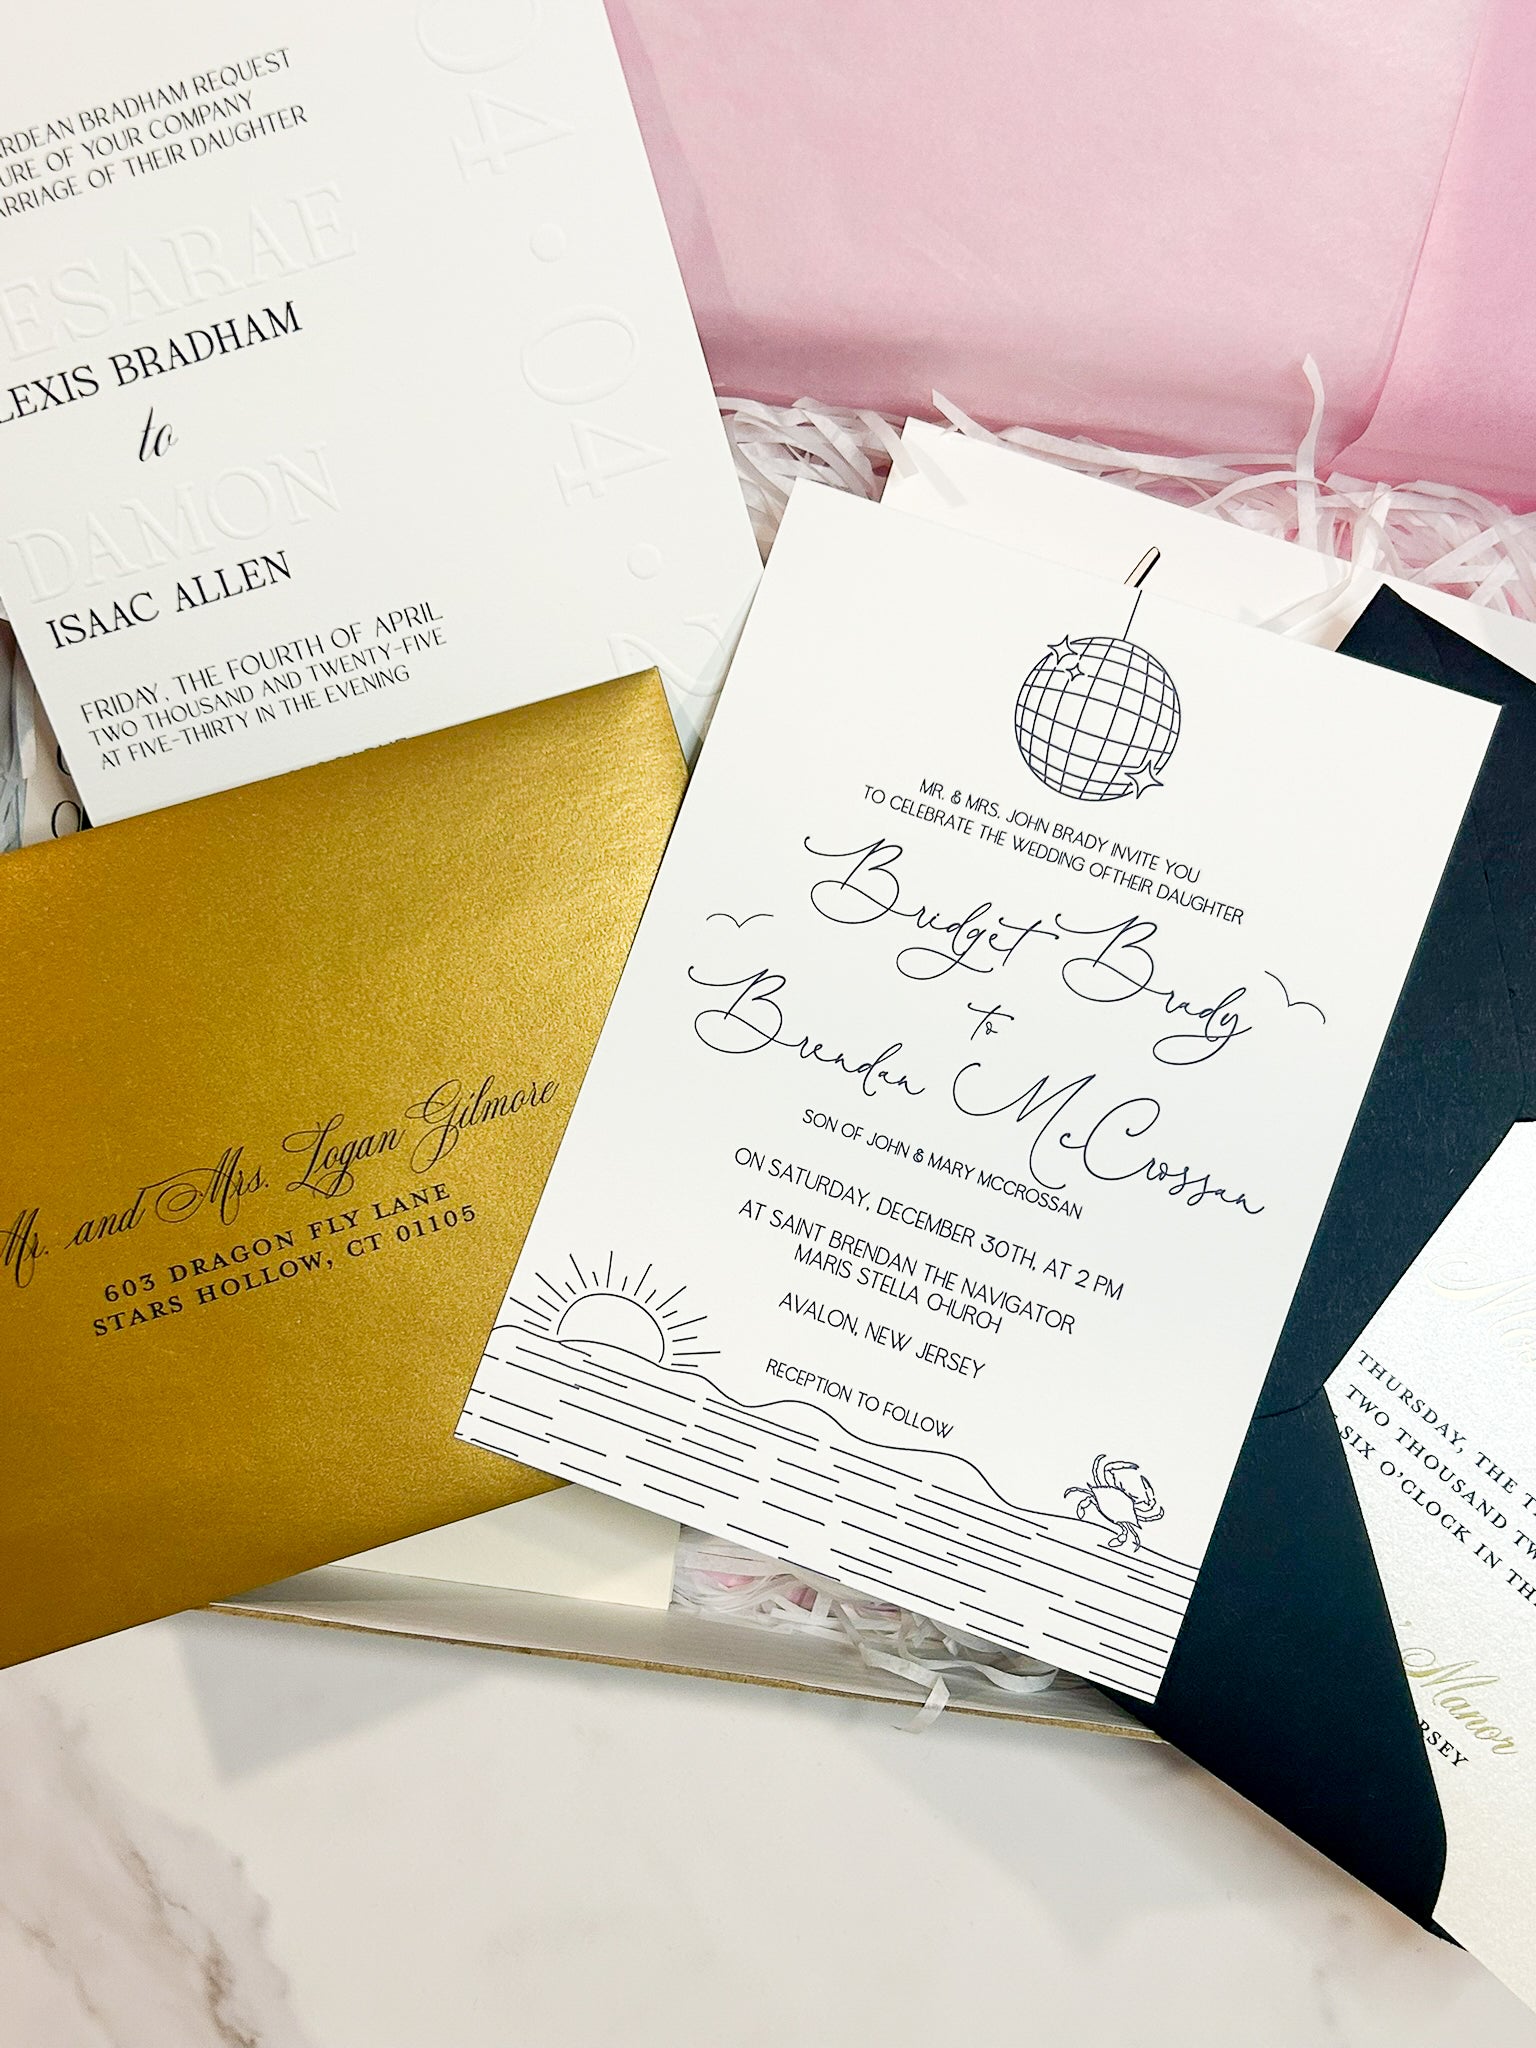 RDEAN BRADHAM REQUEST
URE OF YOUR COMPANY
ARRIAGE OF THEIR DAUGHTER
ESARAE
LEXIS BRADHAM
to
DAMON
ISAAC ALLEN
FRIDAY, THE FOURTH OF APRIL
TWO THOUSAND AND TWENTY-FIVE
AT FIVE-THIRTY IN THE EVENING
04.04.2
Mr. and Mrs. Logan Gilmore
603 DRAGON FLY LANE
STARS HOLLOW, CT 01105
MR. & MRS. JOHN BRADY INVITE YOU
TO CELEBRATE THE WEDDING OFTHEIR DAUGHTER
Bridget Brady
to
Brendan McCrossan
SON OF JOHN & MARY MCCROSSAN
ON SATURDAY, DECEMBER 30TH, AT 2 PM
AT SAINT BRENDAN THE NAVIGATOR
MARIS STELLA CHURCH
AVALON, NEW JERSEY
RECEPTION TO FOLLOW
THURSDAY, THE T
TWO THOUSAND TW
SIX O'CLOCK IN TH
Manor
RSEY